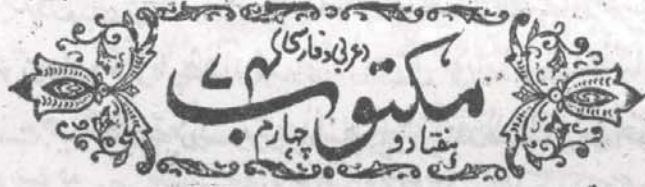 (عربی و فارسی)
مکتوب ۷۴
ہفتاد و چہارم